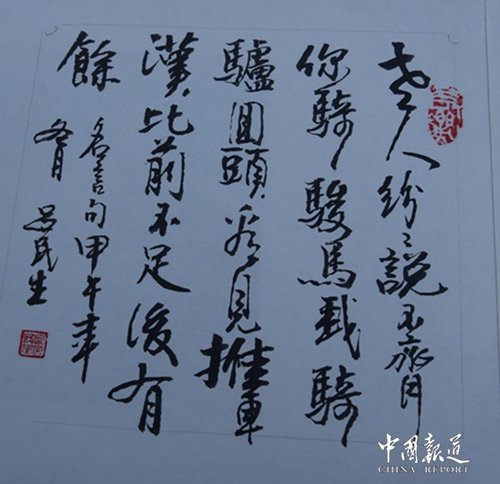 世人紛々說不齊
你騎駿馬我騎
驢回頭看見推車
漢比前不足後有
餘
名言句甲午年
冬月 吕民生
中國報道
CHINA REPORT